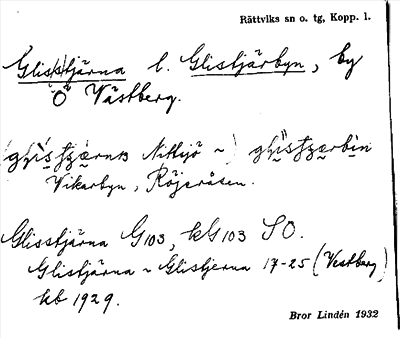 Rättviks sn o. tg, Kopp. l.
Glis(s)tjärna l. Glistjärbyn, by
Ö Västberg.
Nittsjö ~
Vikarbyn, Röjeråsen.
Glisstjärna G103, kG103 SO.
Glistjärna ~ Glistjerna 17-25 (Vestberg)
kb 1929.
Bror Lindén 1932